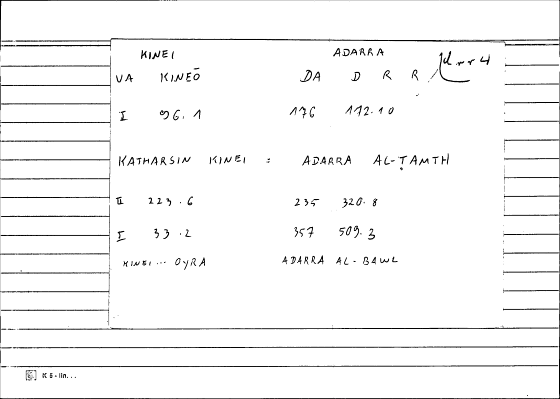 KINEI ADARRA
VA KINEŌ DA D R R drr4
I 96.1 176 112.10
KATHARSIN KINEI : ADARRA AL-ṬAMTH
II 223.6 235 320.8
I 33.2 357 509.3
KINEI ... OYRA ADARRA AL-BAWL
K 6-lin...